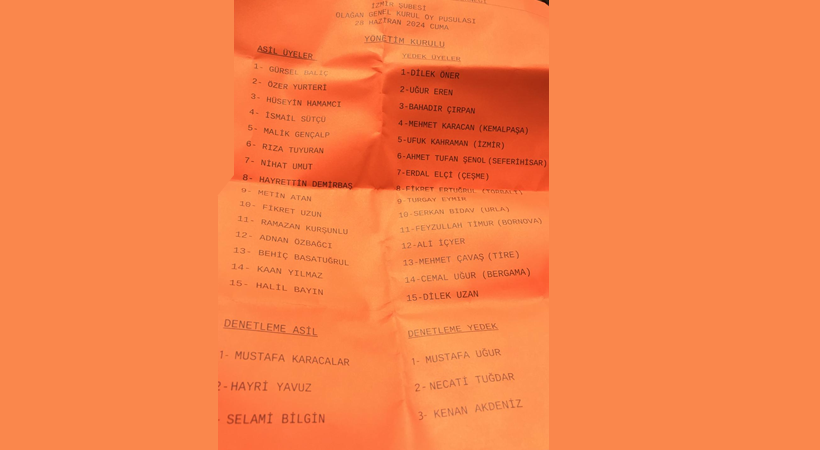 İZMİR ŞUBESİ
OLAĞAN GENEL KURUL OY PUSULASI
28 HAZİRAN 2024 CUMA
YÖNETİM KURULU
ASİL ÜYELER
1- GÜRSEL BALIÇ
2- ÖZER YURTERİ
3- HÜSEYİN HAMAMCI
4- İSMAİL SÜTÇÜ
5- MALİK GENÇALP
6- RIZA TUYURAN
7- NİHAT UMUT
8- HAYRETTİN DEMİRBAŞ
9- METİN ATAN
10- FİKRET UZUN
11- RAMAZAN KURŞUNLU
12- ADNAN ÖZBAĞCI
13- BEHİÇ BASATUĞRUL
14- KAAN YILMAZ
15- HALİL BAYIN
YEDEK ÜYELER
1-DİLEK ÖNER
2-UĞUR EREN
3-BAHADIR ÇIRPAN
4-MEHMET KARACAN (KEMALPAŞA)
5-UFUK KAHRAMAN (İZMİR)
6-AHMET TUFAN ŞENOL (SEFERİHİSAR)
7-ERDAL ELÇİ (ÇEŞME)
8-FİKRET ERTUĞRUL (TORBALI)
9-TURGAY EYMİR
10-SERKAN BIDAV (URLA)
11-FEYZULLAH TİMUR (BORNOVA)
12-ALİ İÇYER
13-MEHMET ÇAVAŞ (TİRE)
14-CEMAL UĞUR (BERGAMA)
15-DİLEK UZAN
DENETLEME ASİL
1- MUSTAFA KARACALAR
2-HAYRİ YAVUZ
- SELAMİ BİLGİN
DENETLEME YEDEK
1- MUSTAFA UĞUR
2-NECATİ TUĞDAR
3- KENAN AKDENİZ